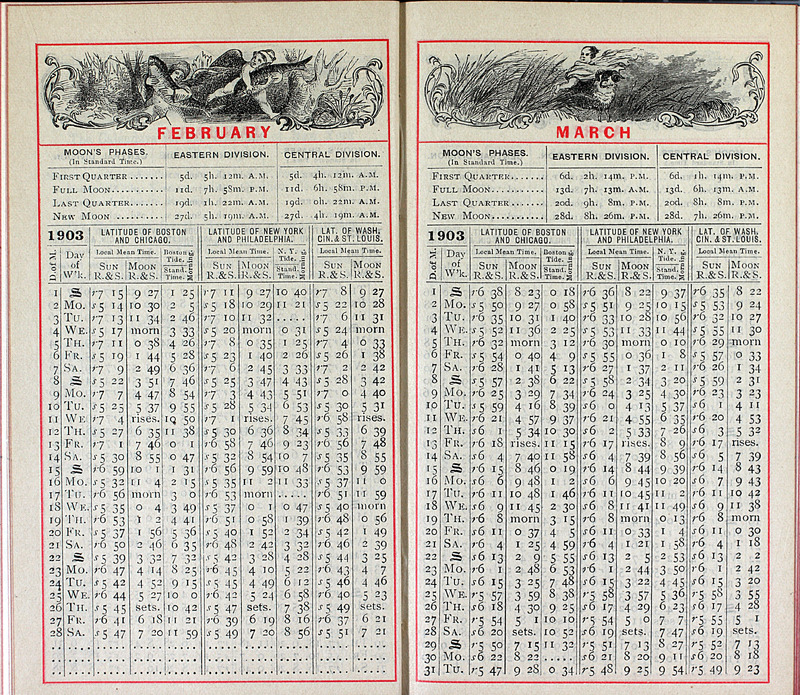 FEBRUARY
MOON'S PHASES. (In Standard Time.) EASTERN DIVISION. CENTRAL DIVISION.
FIRST QUARTER....... 5d. 5h. 12m. A.M. 5d. 4h. 12m. A.M.
FULL MOON........... 11d. 7h. 58m. P.M. 11d. 6h. 58m. P.M.
LAST QUARTER........ 19d. 1h. 22m. A.M. 19d. 0h. 22m. A.M.
NEW MOON ........... 27d. 5h. 19m. A.M. 27d. 4h. 19m. A.M.
1903 LATITUDE OF BOSTON AND CHICAGO. LATITUDE OF NEW YORK AND PHILADELPHIA. LAT. OF WASH, CIN. & ST. LOUIS.
D. of M. Day of W'k. Local Mean Time. Boston Tide. Local Mean Time. N. Y. Tide. Local Mean Time.
SUN R.&S. MOON R.&S. Stand. Time. Morning. SUN R.&S. MOON R.&S. Stand. Time. Morning. SUN R.&S. MOON R.&S.
1 S r7 15 9 27 1 25 r7 11 9 27 10 40 r7 8 9 27
2 Mo. s5 14 10 30 2 5 s5 18 10 29 11 21 s5 22 10 28
3 Tu. r7 13 11 34 2 46 r7 10 11 32 ..... r7 6 11 31
4 We. s5 17 morn 3 33 s5 20 morn 0 31 s5 24 morn
5 Th. r7 11 0 38 4 26 r7 8 0 35 1 25 r7 4 0 33
6 Fr. s5 19 1 44 5 28 s5 23 1 40 2 26 s5 26 1 38
7 Sa. r7 9 2 49 6 36 r7 6 2 45 3 33 r7 2 2 42
8 S s5 22 3 51 7 46 s5 25 3 47 4 43 s5 28 3 42
9 Mo. r7 7 4 47 8 54 r7 3 4 43 5 51 r7 0 4 40
10 Tu. s5 25 5 37 9 55 s5 28 5 34 6 53 s5 30 5 31
11 We r7 4 rises. 10 50 r7 1 rises. 7 45 r6 58 rises.
12 Th. s5 27 6 35 11 38 s5 30 6 36 8 34 s5 33 6 39
13 Fr. r7 1 7 46 0 1 r6 58 7 46 9 23 r6 56 7 48
14 Sa. s5 30 8 55 0 47 s5 32 8 54 10 7 s5 35 8 55
15 S r6 59 10 1 1 31 r6 56 9 59 10 48 r6 53 9 59
16 Mo. s5 32 11 4 2 15 s5 35 11 2 11 33 s5 37 11 0
17 Tu. r6 56 morn 3 0 r6 53 morn ..... r6 51 11 59
18 We. s5 35 0 4 3 49 s5 37 0 1 0 47 s5 40 morn
19 Th. r6 53 1 2 4 41 r6 51 0 58 1 39 r6 48 0 56
20 Fr. s5 37 1 56 5 36 s5 40 1 52 2 34 s5 42 1 49
21 Sa. r6 50 2 46 6 35 r6 48 2 42 3 32 r6 46 2 39
22 S s5 39 3 32 7 32 s5 42 3 28 4 28 s5 44 3 25
23 Mo. r6 47 4 14 8 25 r6 45 4 10 5 22 r6 43 4 7
24 Tu. s5 42 4 52 9 15 s5 45 4 49 6 12 s5 46 4 46
25 We. r6 44 5 27 10 0 r6 42 5 24 6 58 r6 40 5 23
26 Th. s5 45 sets. 10 42 s5 47 sets. 7 38 s5 49 sets.
27 Fr. r6 41 6 18 11 21 r6 39 6 19 8 16 r6 37 6 21
28 Sa. s5 47 7 20 11 59 s5 49 7 20 8 56 s5 51 7 21
MARCH
MOON'S PHASES. (In Standard Time.) EASTERN DIVISION. CENTRAL DIVISION.
FIRST QUARTER ....... 6d. 2h. 14m. P.M. 6d. 1h. 14m. P.M.
FULL MOON........... 13d. 7h. 13m. A.M. 13d. 6h. 13m. A.M.
LAST QUARTER........ 20d. 9h. 8m. P.M. 20d. 8h. 8m. P.M.
NEW MOON........... 28d. 8h. 26m. P.M. 28d. 7h. 26m. P.M.
1903 LATITUDE OF BOSTON AND CHICAGO. LATITUDE OF NEW YORK AND PHILADELPHIA. LAT. OF WASH. CIN. & ST. LOUIS.
D. of M. Day of W'k. Local Mean Time. Boston Tide. Local Mean Time. N. Y. Tide. Local Mean Time.
SUN R.&S. MOON R.&S. Stand. Time. Morning. SUN R.&S. MOON R.&S. Stand. Time. Morning. SUN R.&S. MOON R.&S.
1 S r6 38 8 23 0 18 r6 36 8 22 9 37 r6 35 8 22
2 Mo. s5 50 9 27 0 58 s5 51 9 25 10 15 s5 53 9 24
3 Tu. r6 35 10 31 1 40 r6 33 10 28 10 56 r6 32 10 27
4 We. s5 52 11 36 2 25 s5 53 11 33 11 44 s5 55 11 30
5 Th. r6 32 morn 3 12 r6 30 morn 0 10 r6 29 morn
6 Fr. s5 54 0 40 4 9 s5 55 0 36 1 8 s5 57 0 33
7 Sa. r6 28 1 41 5 13 r6 27 1 37 2 11 r6 26 1 34
8 S s5 57 2 38 6 22 s5 58 2 34 3 20 s5 59 2 31
9 Mo. r6 25 3 29 7 34 r6 24 3 25 4 30 r6 23 3 23
10 Tu. s5 59 4 16 8 39 s6 0 4 13 5 37 s6 1 4 11
11 We. r6 21 4 57 9 37 r6 21 4 55 6 35 r6 20 4 53
12 Th. s6 1 5 34 10 30 s6 2 5 33 7 26 s6 3 5 32
13 Fr. r6 18 rises. 11 15 r6 17 rises. 8 9 r6 17 rises.
14 Sa. s6 4 7 40 11 58 s6 4 7 39 8 56 s6 5 7 39
15 S r6 15 8 46 0 19 r6 14 8 44 9 39 r6 14 8 43
16 Mo. s6 6 9 48 1 2 s6 6 9 45 10 20 s6 7 9 43
17 Tu. r6 11 10 48 1 46 r6 11 10 45 11 2 r6 11 10 42
18 We. s6 9 11 45 2 30 s6 8 11 41 11 49 s6 9 11 38
19 Th. r6 8 morn 3 15 r6 8 morn 0 13 r6 8 morn
20 Fr. s6 11 0 37 4 5 s6 11 0 33 1 4 s6 11 0 30
21 Sa. r6 4 1 25 4 59 r6 4 1 21 1 58 r6 4 1 18
22 S s6 13 2 9 5 55 s6 13 2 5 2 53 s6 13 2 2
23 Mo. r6 1 2 48 6 53 r6 1 2 44 3 50 r6 1 2 42
24 Tu. s6 15 3 25 7 48 s6 15 3 22 4 45 s6 15 3 20
25 We. r5 57 3 59 8 38 r5 58 3 57 5 36 r5 58 3 55
26 Th. s6 18 4 30 9 25 s6 17 4 29 6 23 s6 17 4 28
27 Fr. r5 54 5 1 10 10 r5 54 5 0 7 7 r5 55 5 1
28 Sa. s6 20 sets. 10 52 s6 19 sets. 7 47 s6 19 sets.
29 S r5 50 7 15 11 32 r5 51 7 13 8 27 r5 52 7 13
30 Mo. s6 22 8 22 ..... s6 21 8 20 9 11 s6 20 8 18
31 Tu. r5 47 9 28 0 34 r5 48 9 25 9 54 r5 49 9 23